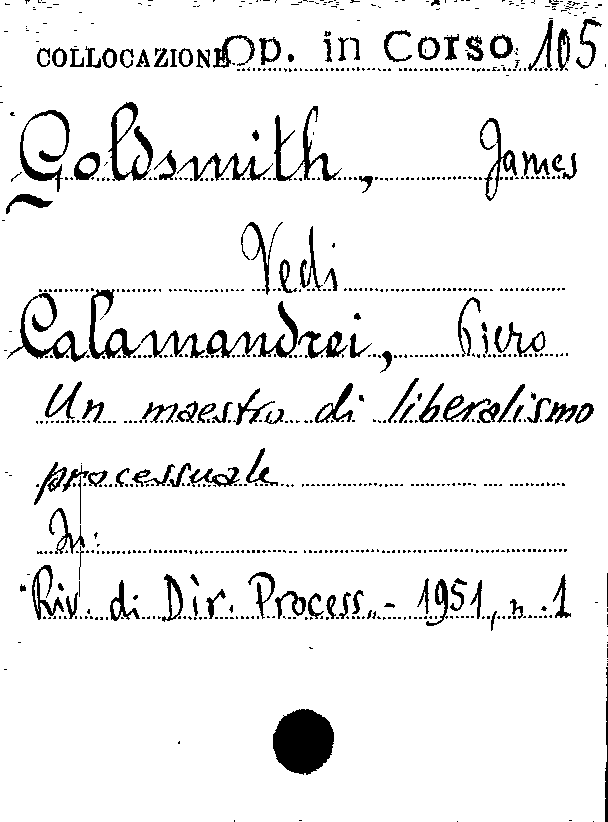 COLLOCAZIONE Op. in Corso, 105.
Goldsmith, James
Vedi
Calamandrei, Piero
Un maestro di liberalismo
processuale
In:
"Riv. di Dir. Process„ - 1951, n. 1